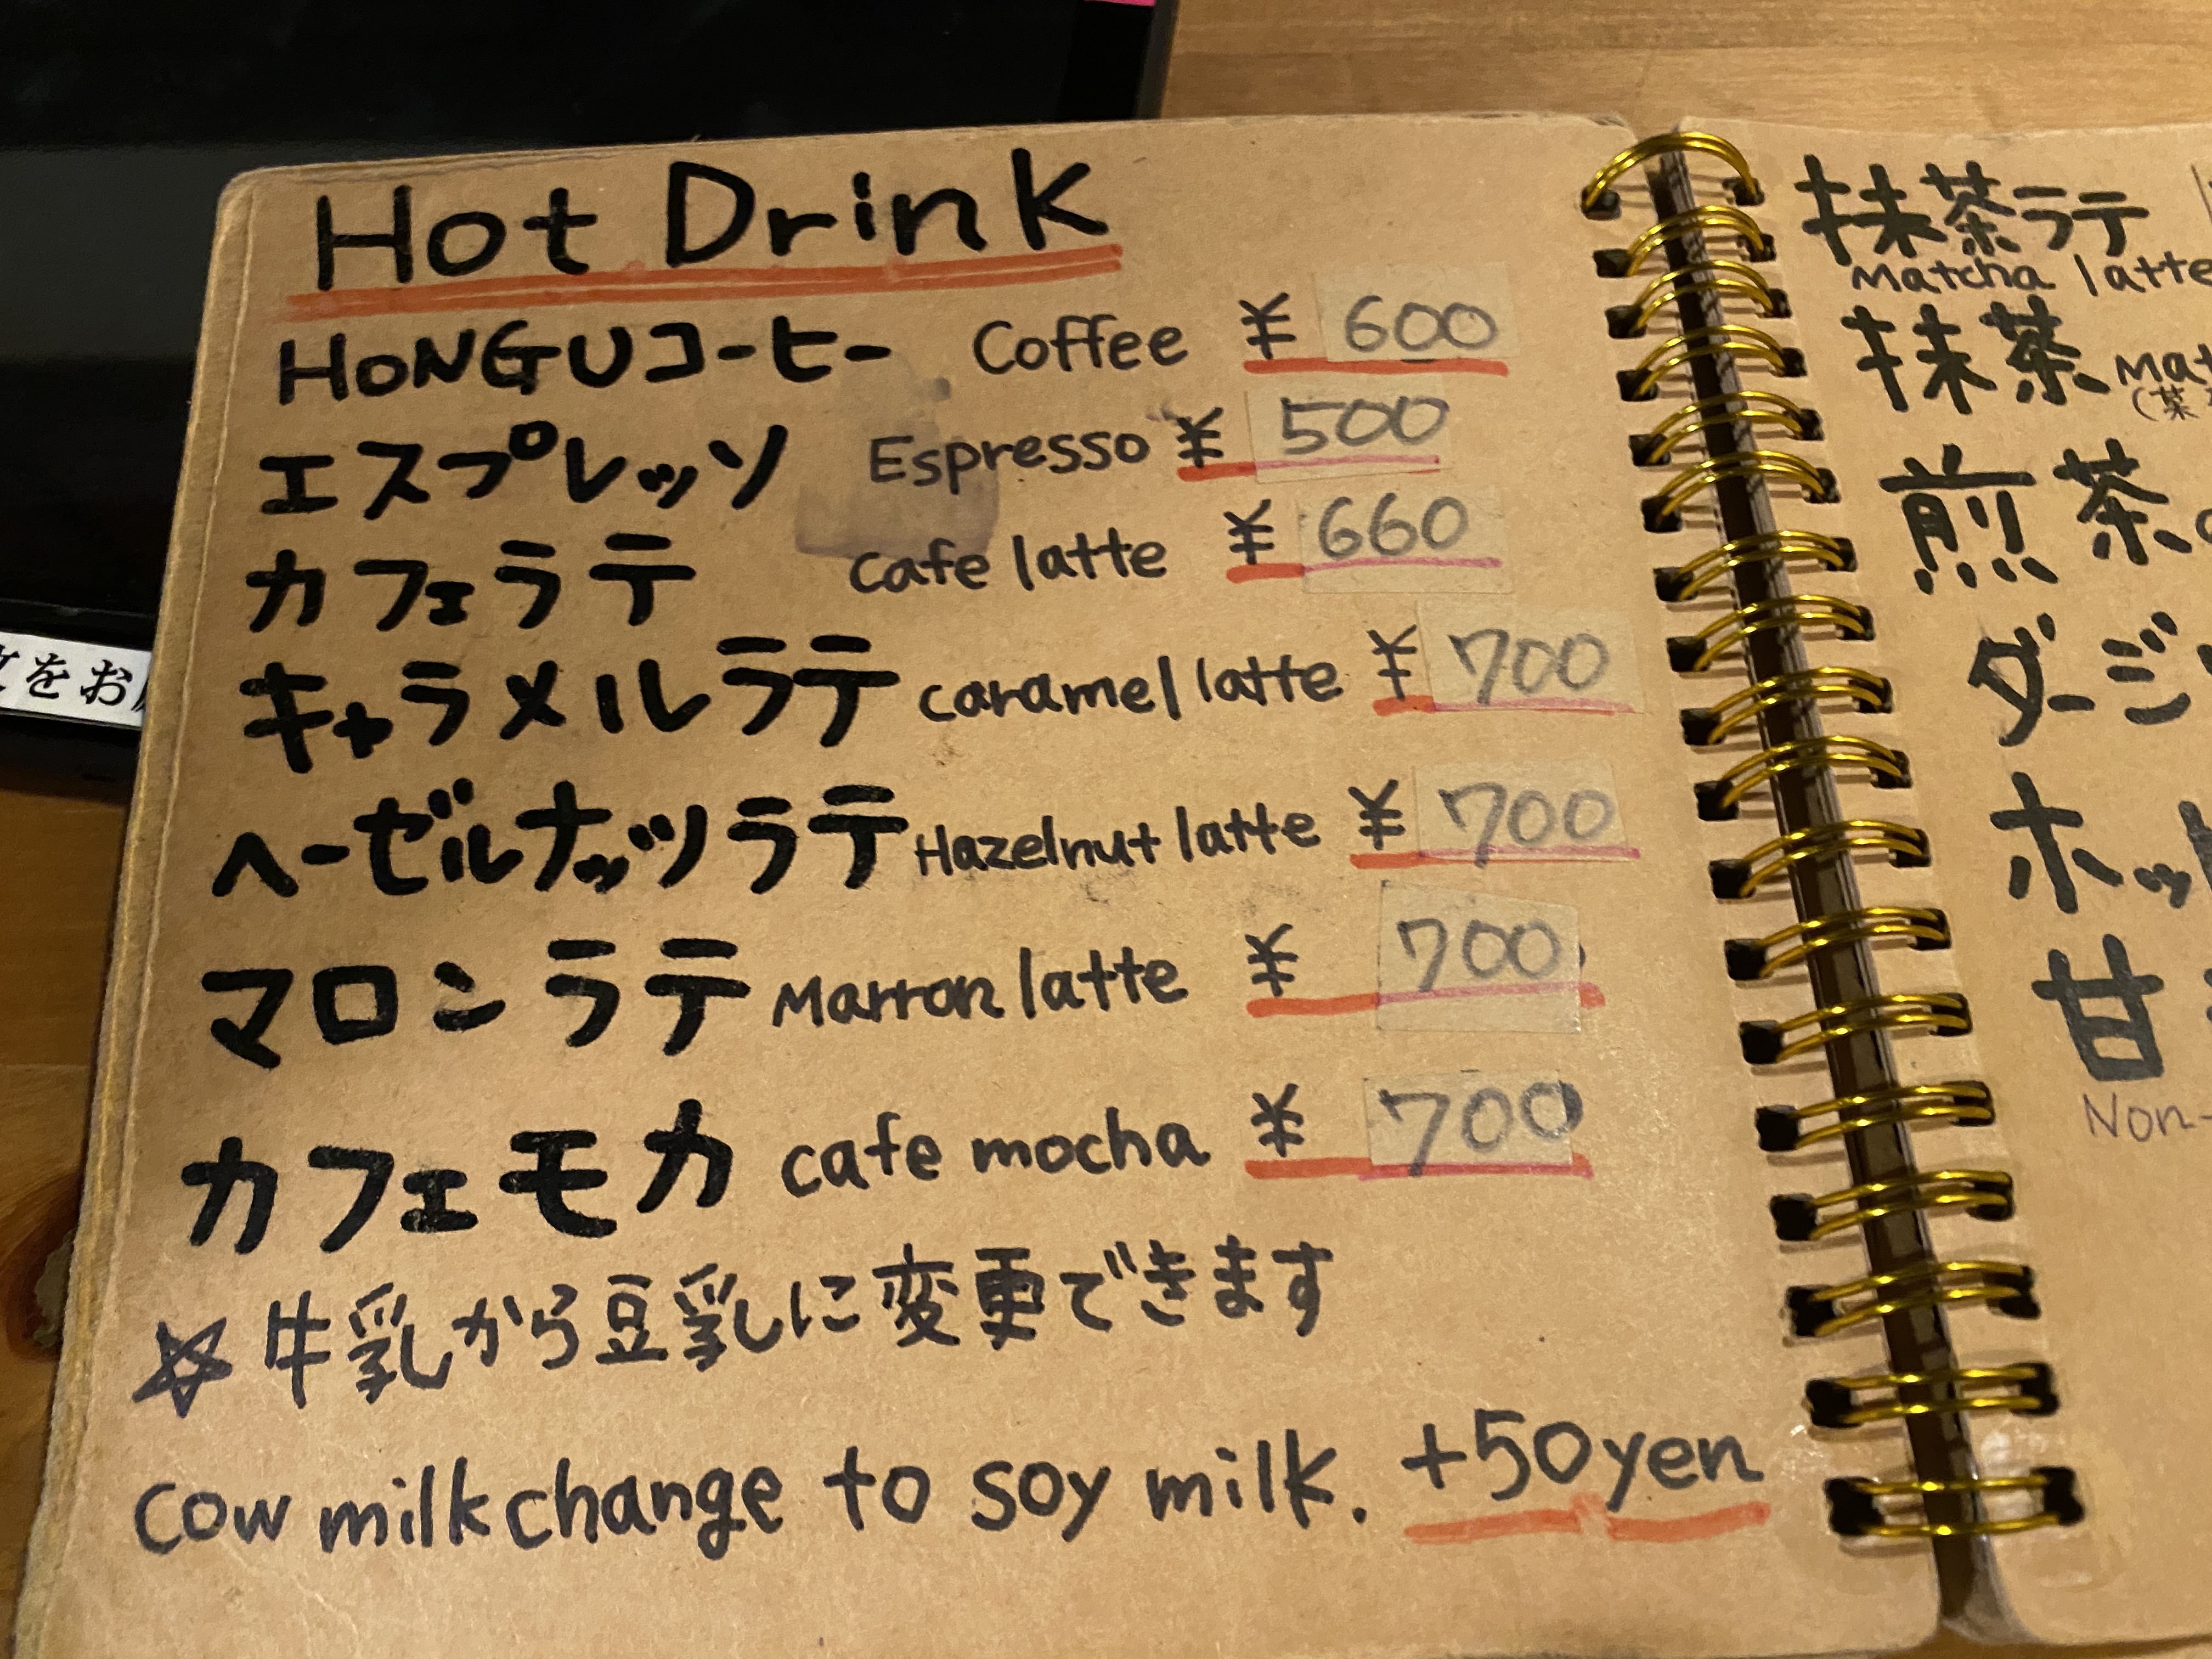 Hot Drink
HONGUコーヒー Coffee ¥ 600
エスプレッソ Espresso ¥ 500
カフェラテ cafe latte ¥ 660
キャラメルラテ caramel latte ¥ 700
ヘーゼルナッツラテ Hazelnut latte ¥ 700
マロンラテ Marron latte ¥ 700
カフェモカ cafe mocha ¥ 700
☆牛乳から豆乳に変更できます
cow milk change to soy milk. +50yen
をお
抹茶ラテ
Matcha latte
抹茶
煎茶
ホット
甘
Non-